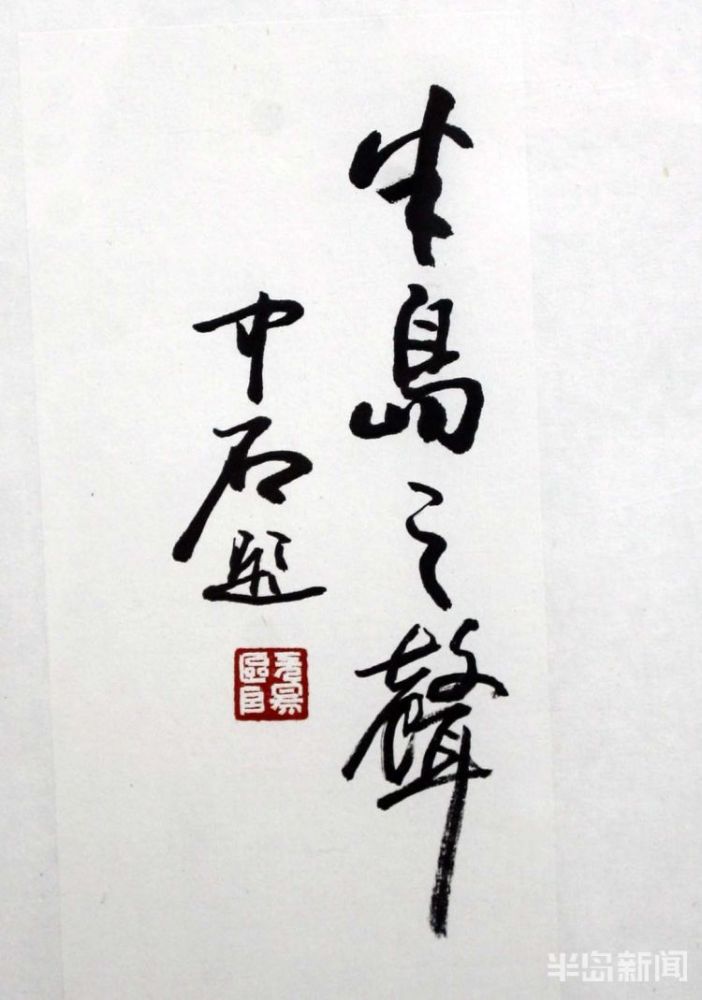 半島之聲
中石题
半岛新闻